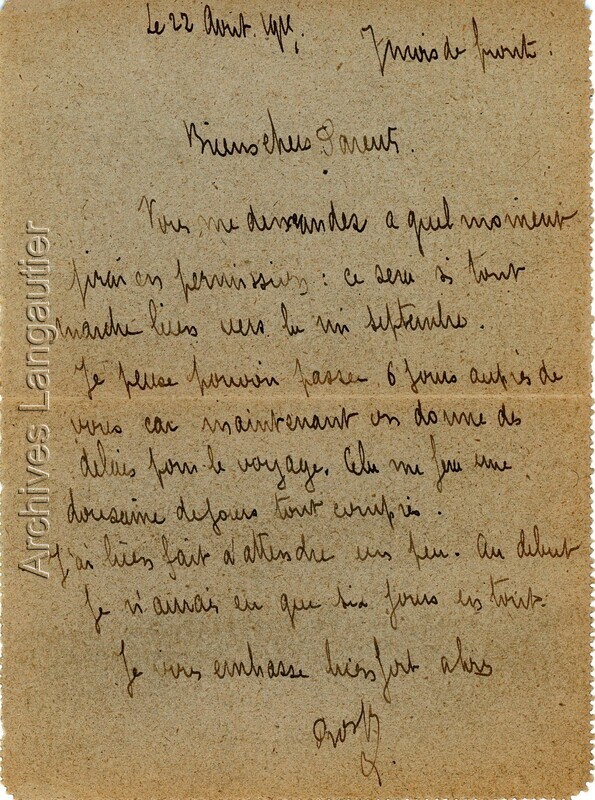 Le 22 Aout. 191
7 mois de front :
Biens chers Parents.
Vous me demandez a quel moment
j'irai en permission : ce sera si tout
marche bien vers la mi septembre.
Je pense pouvoir passer 6 jours auprès de
vous car maintenant on donne des
delais pour le voyage. Cela me fera une
dousaine de jours tout compris.
J'ai bien fait d'attendre un peu. Au debut
Je n'aurais eu que six jours en tout.
Je vous embrasse bien fort
Archives Langautier